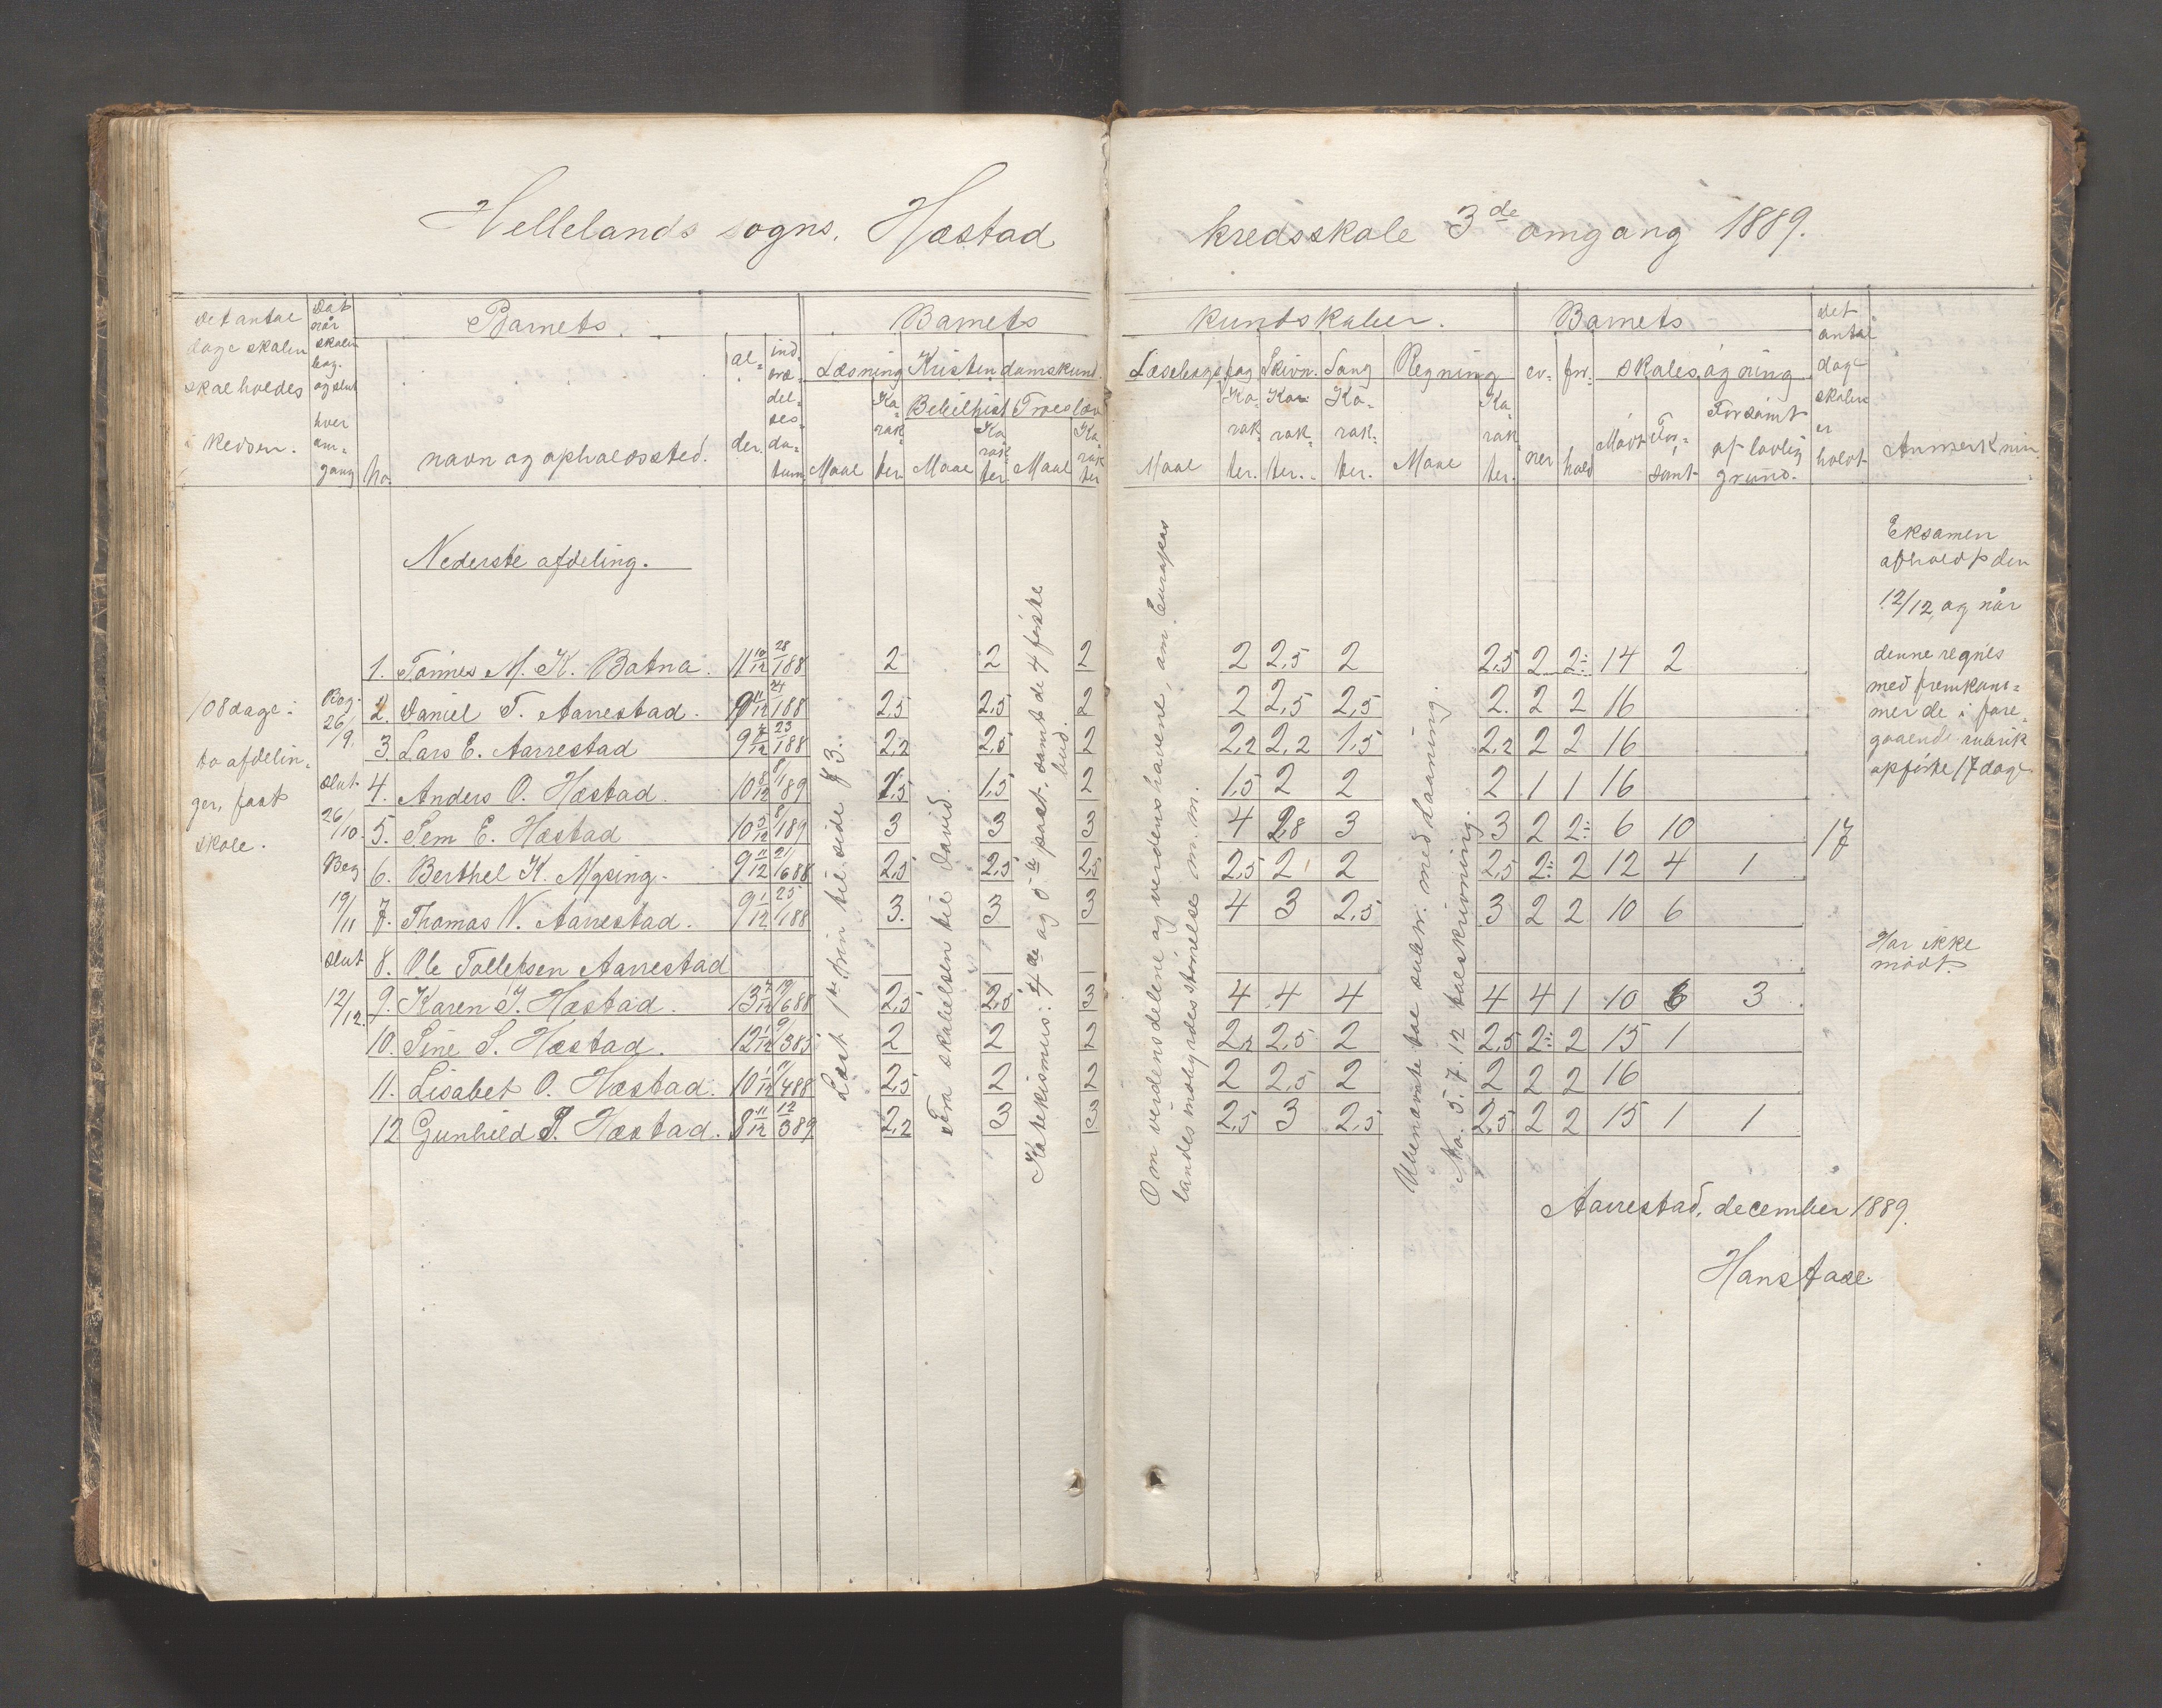 Hellelands sogns. Hæstad kredsskole 3de omgang 1889.
Det antal dage skolen skal holdes i kredsen.
Dat. når skolen beg. og slut hver om- gang
Barnets
no. navn og opholdssted. al- der. ind- træ- del- ses- da- tum
Barnets kundskaber.
Læsning Kristendomskund.
Bibelhist Troeslær
Maal Ka- rak- ter. Maal Ka- rak- ter. Maal Ka- rak- ter
Læsebogsfag Skrivn. Sang Regning
Maal Ka- rak- ter. Ka- rak- ter. Ka- rak- ter. Maal Ka- rak- ter.
Barnets
ev- ner for- hold skolesøgning
Mødt For- sømt Forsømt af lovlig grund.
det antal dage skolen er holdt
Anmerknin.
Nederste afdeling.
108 dage i
to afdelin-
ger, fast
skole.
Beg. 26/9.
slut 26/10.
Beg 19/11
slut 12/12.
1. Tønnes M. K. Botna. 11 10/12 28/1 88 2 2 2 2 2,5 2 2,5 2 2÷ 14 2
2. Daniel T. Aarrestad. 9 11/12 24/1 88 2,5 2,5 2 2 2,5 2,5 2. 2 2 16
3. Lars E. Aarrestad 9 4/12 23/1 88 2,2 2,5 2 2,2 2,2 1,5 2,2 2 2 16
4. Anders O. Hæstad. 10 8/12 8/1 89 1,5 1,5 2 1,5 2 2 2 1 1 16
5. Sem E. Hæstad 10 5/12 8/1 89 3 3 3 4 2,8 3 3 2 2÷ 6 10
6. Berthel K. Mysing. 9 11/12 21/6 88 2,5 2,5 2,5 2,5 2 2 2,5 2÷ 2 12 4 1
7. Thomas N. Aarrestad. 9 1/12 25/1 88 3. 3 3 4 3 2,5 3 2 2 10 6
8. Ole Tollefsen Aarrestad
9. Karen T. Hæstad. 13 4/12 19/6 88 2,5 2,5 3 4 4 4 4 4 1 10 6 3
10. Sine S. Hæstad. 12 1/12 9/3 85 2 2 2 2,2 2,5 2 2,5 2÷ 2 15 1
11. Lisabet O. Hæstad. 10 1/12 11/4 88 2,5 2 2 2 2,5 2 2 2 2 16
12 Gunhild P. Hæstad. 8 11/12 12/3 89 2,2 3 3 2,5 3 2,5 2,5 2 2 15 1 1
Læst 1ste trin til side 83.
Fra skabelsen til David.
Katekismus: 4de og 5te part, samt de 4 første
bud.
Om verdensdelene og verdenshavene, om Europas
landes indbyrdes størrelse m. m.
Ubenævnte tal subtr. med laaning.
No. 5. 7. 12 talskrivning.
17
Eksamen
afholdt den
12/12, og når
denne regnes
med fremkom-
mer de i fore-
gaaende rubrik
opførte 17 dage.
Har ikke
mødt.
Aarrestad, december 1889.
Hanstase.